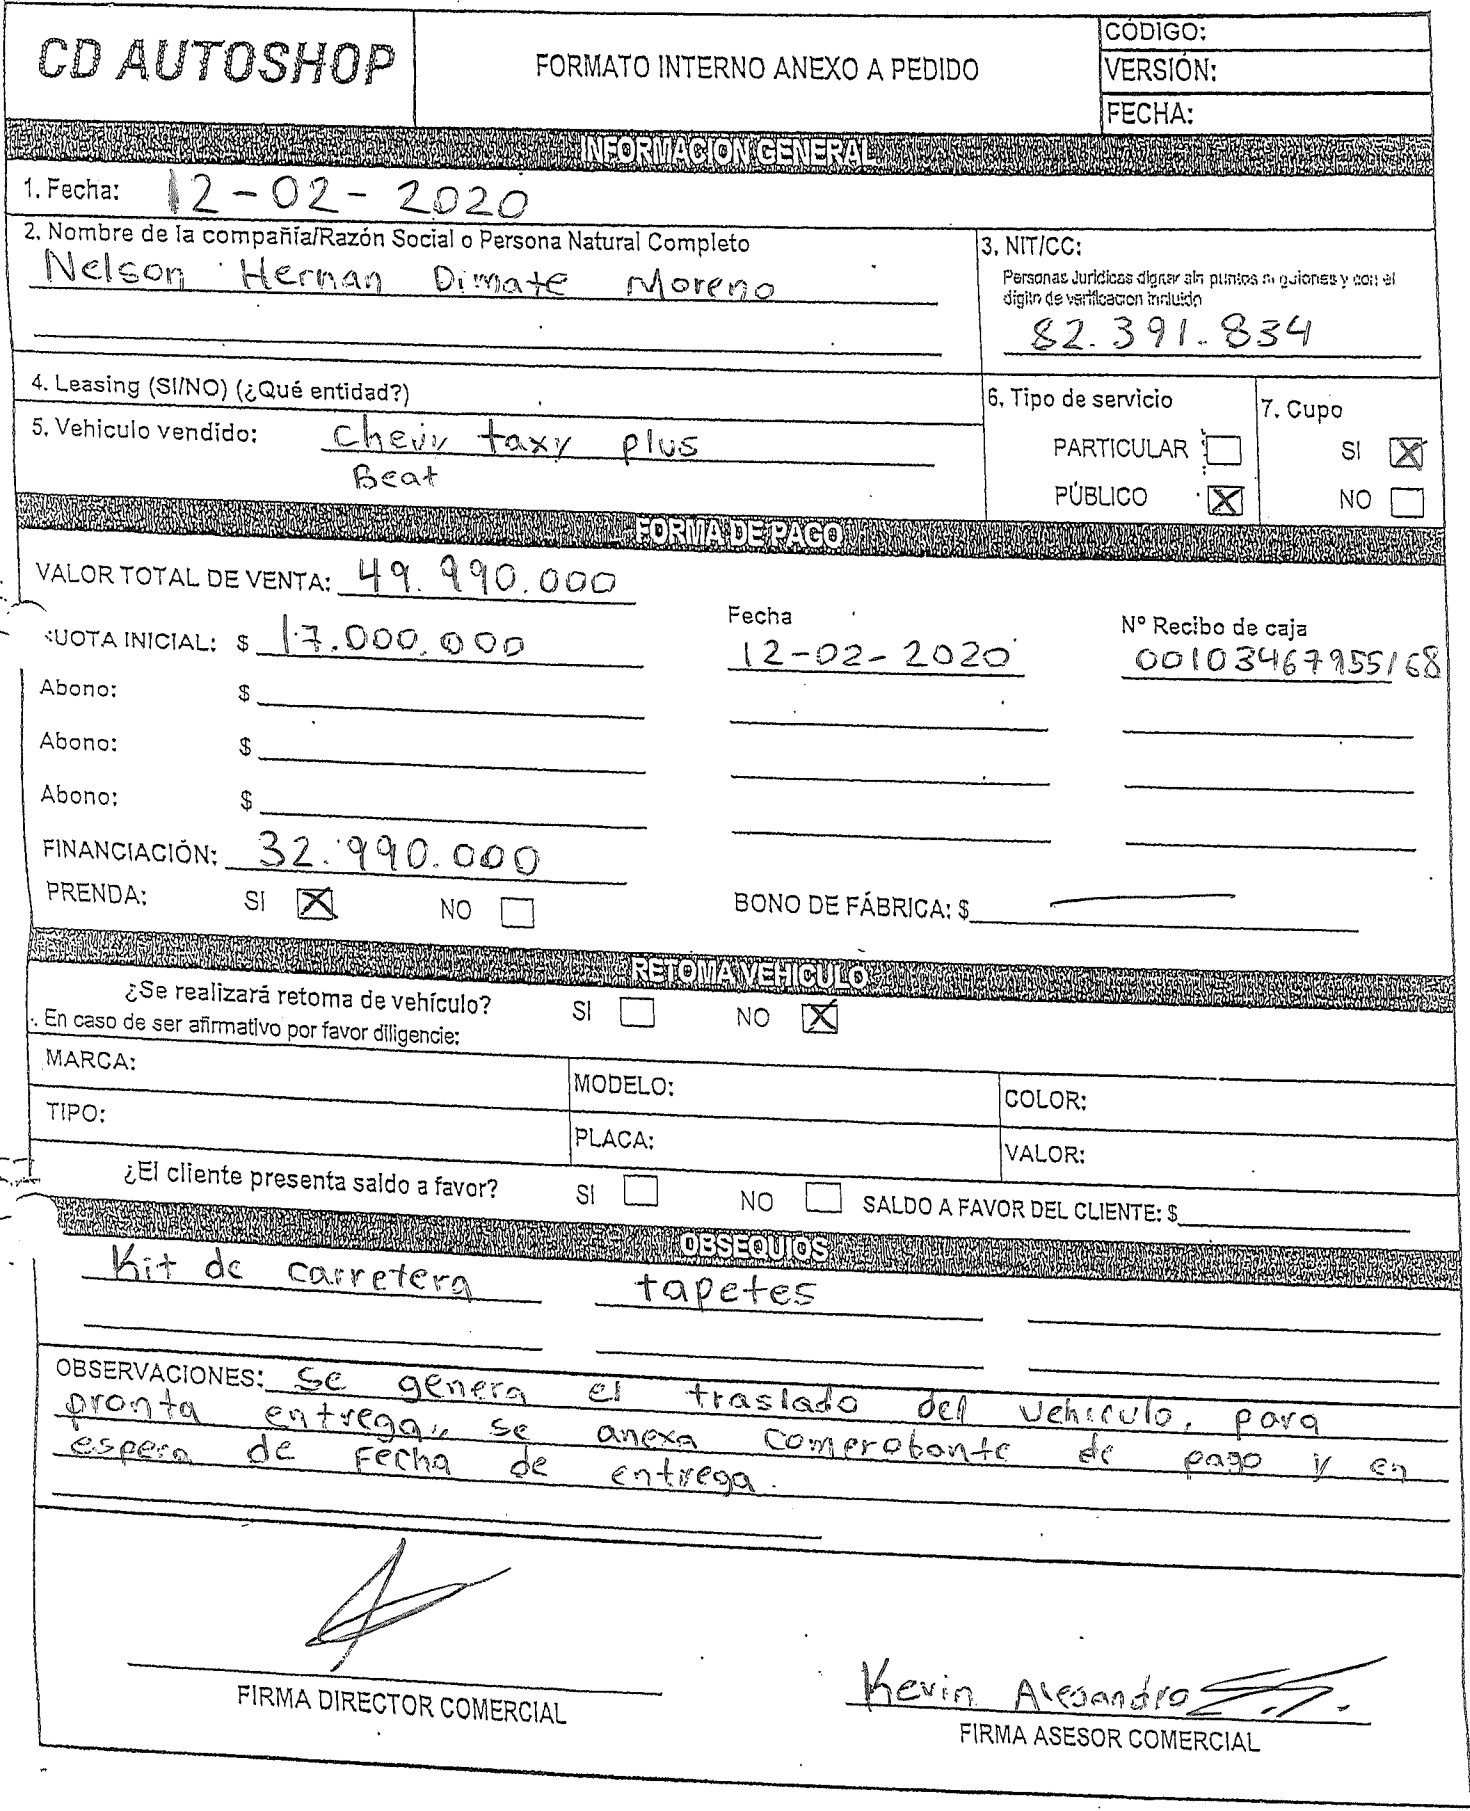 CD AUTOSHOP
FORMATO INTERNO ANEXO A PEDIDO
CÓDIGO:
VERSIÓN:
FECHA:
INFORMACION GENERAL
1. Fecha: 12-02-2020
2. Nombre de la compañía/Razón Social o Persona Natural Completo
Nelson Hernan Dimate Moreno
3. NIT/CC:
Personas Juridicas digitar sin puntos ni guiones y con el
digito de verificacion incluido
82.391.834
4. Leasing (SI/NO) (¿Qué entidad?)
5. Vehiculo vendido: Chevy taxy plus
Beat
6. Tipo de servicio
PARTICULAR
PÚBLICO X
7. Cupo
SI X
NO
FORMA DE PAGO
VALOR TOTAL DE VENTA: 49.990.000
Fecha
Nº Recibo de caja
CUOTA INICIAL: $ 17.000.000 12-02-2020 00103467955168
Abono: $
Abono: $
Abono: $
FINANCIACIÓN: 32.990.000
PRENDA: SI X NO BONO DE FÁBRICA: $
RETOMA VEHICULO
¿Se realizará retoma de vehículo? SI NO X
. En caso de ser afirmativo por favor diligencie:
MARCA: MODELO: COLOR:
TIPO: PLACA: VALOR:
¿El cliente presenta saldo a favor? SI NO SALDO A FAVOR DEL CLIENTE: $
OBSEQUIOS
Kit de carretera tapetes
OBSERVACIONES: Se genera el traslado del vehiculo, para
pronta entrega,, se anexa comerobante de pago y en
espera de Fecha de entrega.
FIRMA DIRECTOR COMERCIAL
Kevin Alejandro
FIRMA ASESOR COMERCIAL